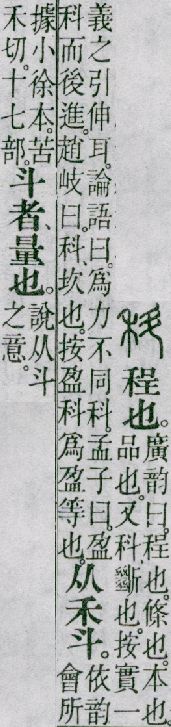 科
程也。
廣韵曰。程也。條也。本也
品也。又科斷也。按實一
義之引伸耳。論語曰。爲力不同科。孟子曰。盈
科而後進。趙岐曰。科、坎也。按盈科爲盈等也。
从禾斗。
依韵
會所
據小徐本。苦
禾切。十七部。
斗者、量也。
說从斗
之意。